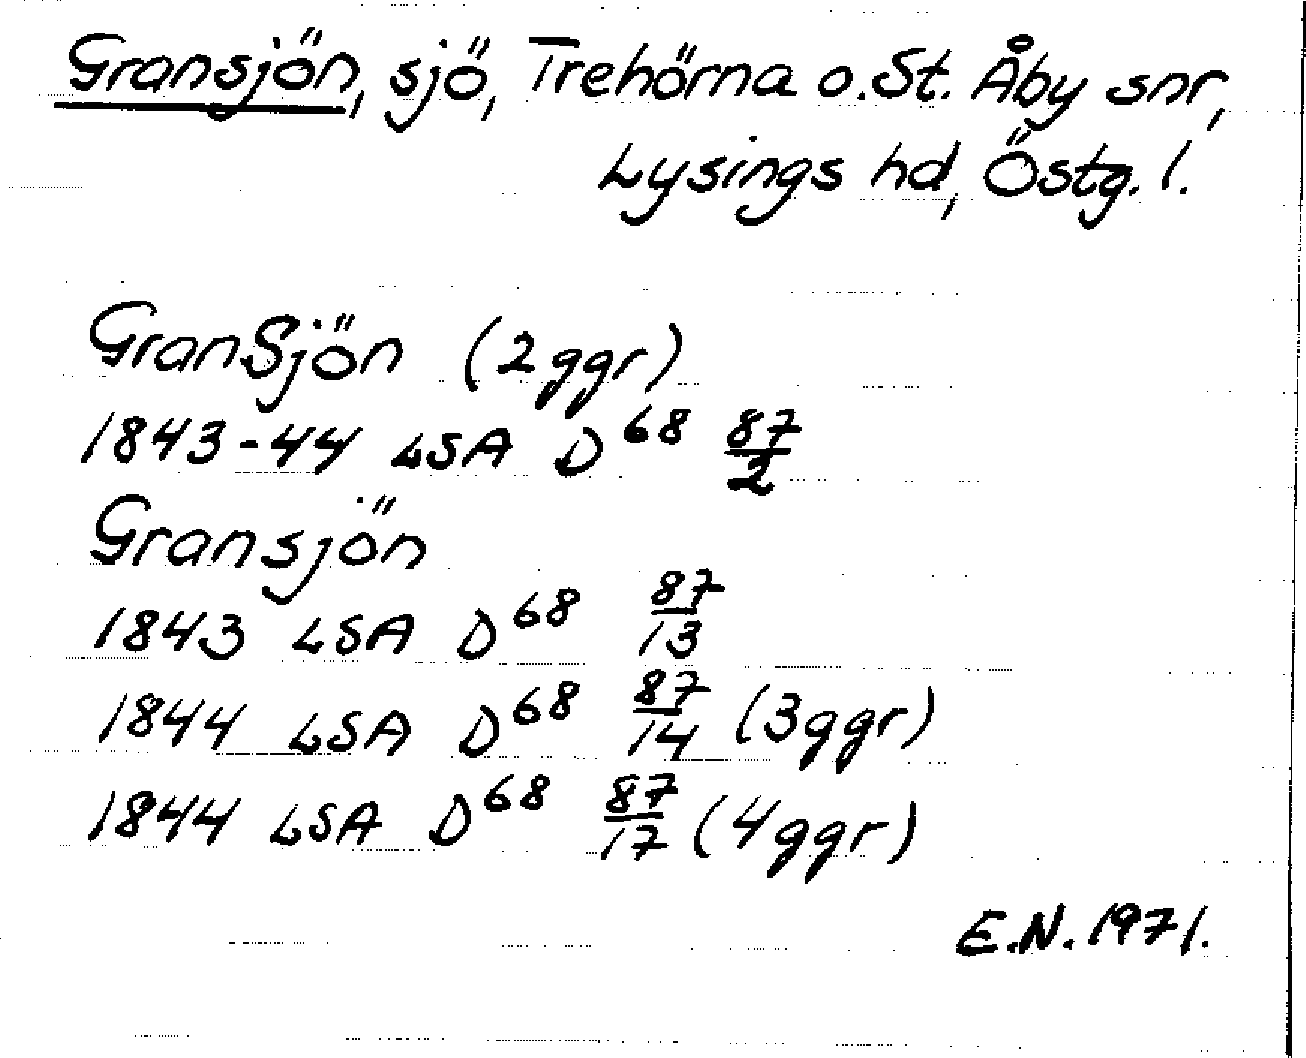 Gransjön, sjö, Trehörna o. St. Åby snr,
Lysings hd, Östg. l.
GranSjön (2ggr)
1843-44 LSA D68 87/2
Gransjön
1843 LSA D68 87/13
1844 LSA D68 87/14 (3ggr)
1844 LSA D68 87/17 (4ggr)
E.N. 1971.